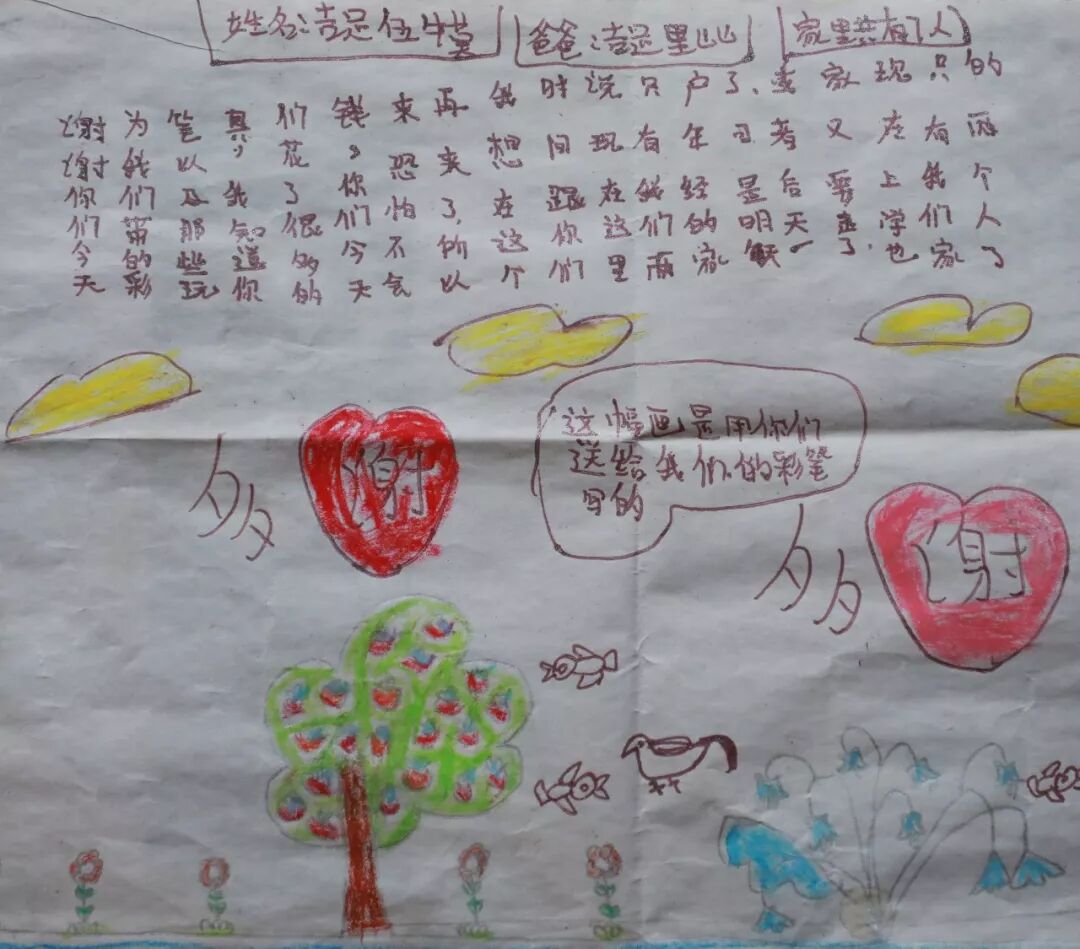 姓名:吉足伍牛莫
爸爸:吉足里山山
家里共有7人
谢谢你们今天
为我们带的彩
笔以及那些玩
具,我知道你
们花了很多的
钱,你们今天
来恐怕不气
再来了,所以
我想在这个
时间跟你们
说现在这里
只有我们两
户年经的家
了.已是明天
或者后天一
家又要走了.
现在上学也
只有我们家
的两个人了
这幅画是用你们
送给我们的彩笔
写的
多谢
多谢